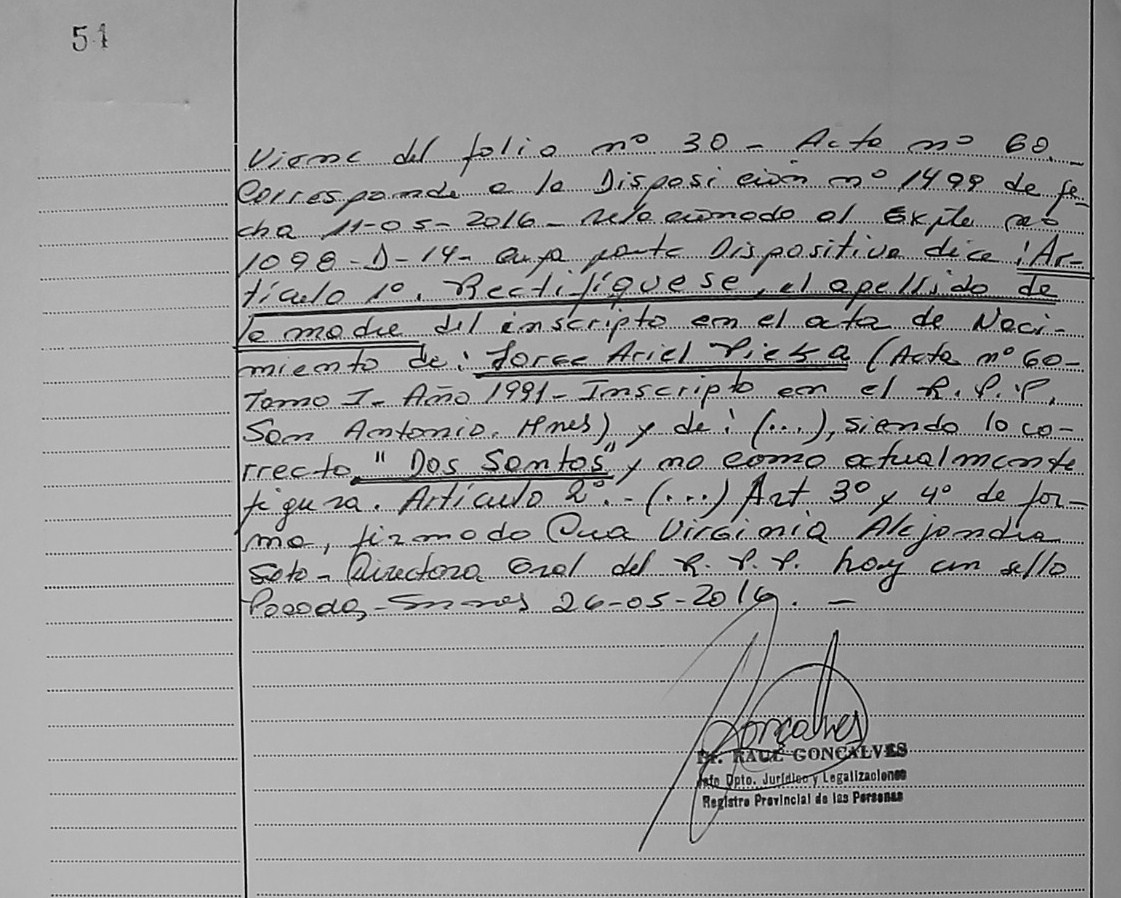 51
Viene del folio nº 30 - Acta nº 60.-
Corresponde a la Disposición nº 1499 de fe-
cha 11-05-2016- relacionado al Expte nº
1098-D-14- cuya parte Dispositiva dice: "Ar-
tículo 1º. Rectifíquese, el apellido de
la madre del inscripto en el acta de Naci-
miento de: Jorge Ariel Vieira (Acta nº 60-
Tomo I- Año 1991- Inscripto en el R.P.P.
San Antonio. Mnes) y de: (...), siendo lo co-
rrecto "Dos Santos" y no como actualmente
figura. Artículo 2º.- (...) Art 3º y 4º de for-
ma, firmado Virginia Alejandra
Soto- Directora Gral del R.P.P. hay un sello
Posadas,- 26-05-2016. -
Goncalves
Dr. RAUL GONCALVES
Jefe Dpto. Jurídico y Legalizaciones
Registro Provincial de las Personas